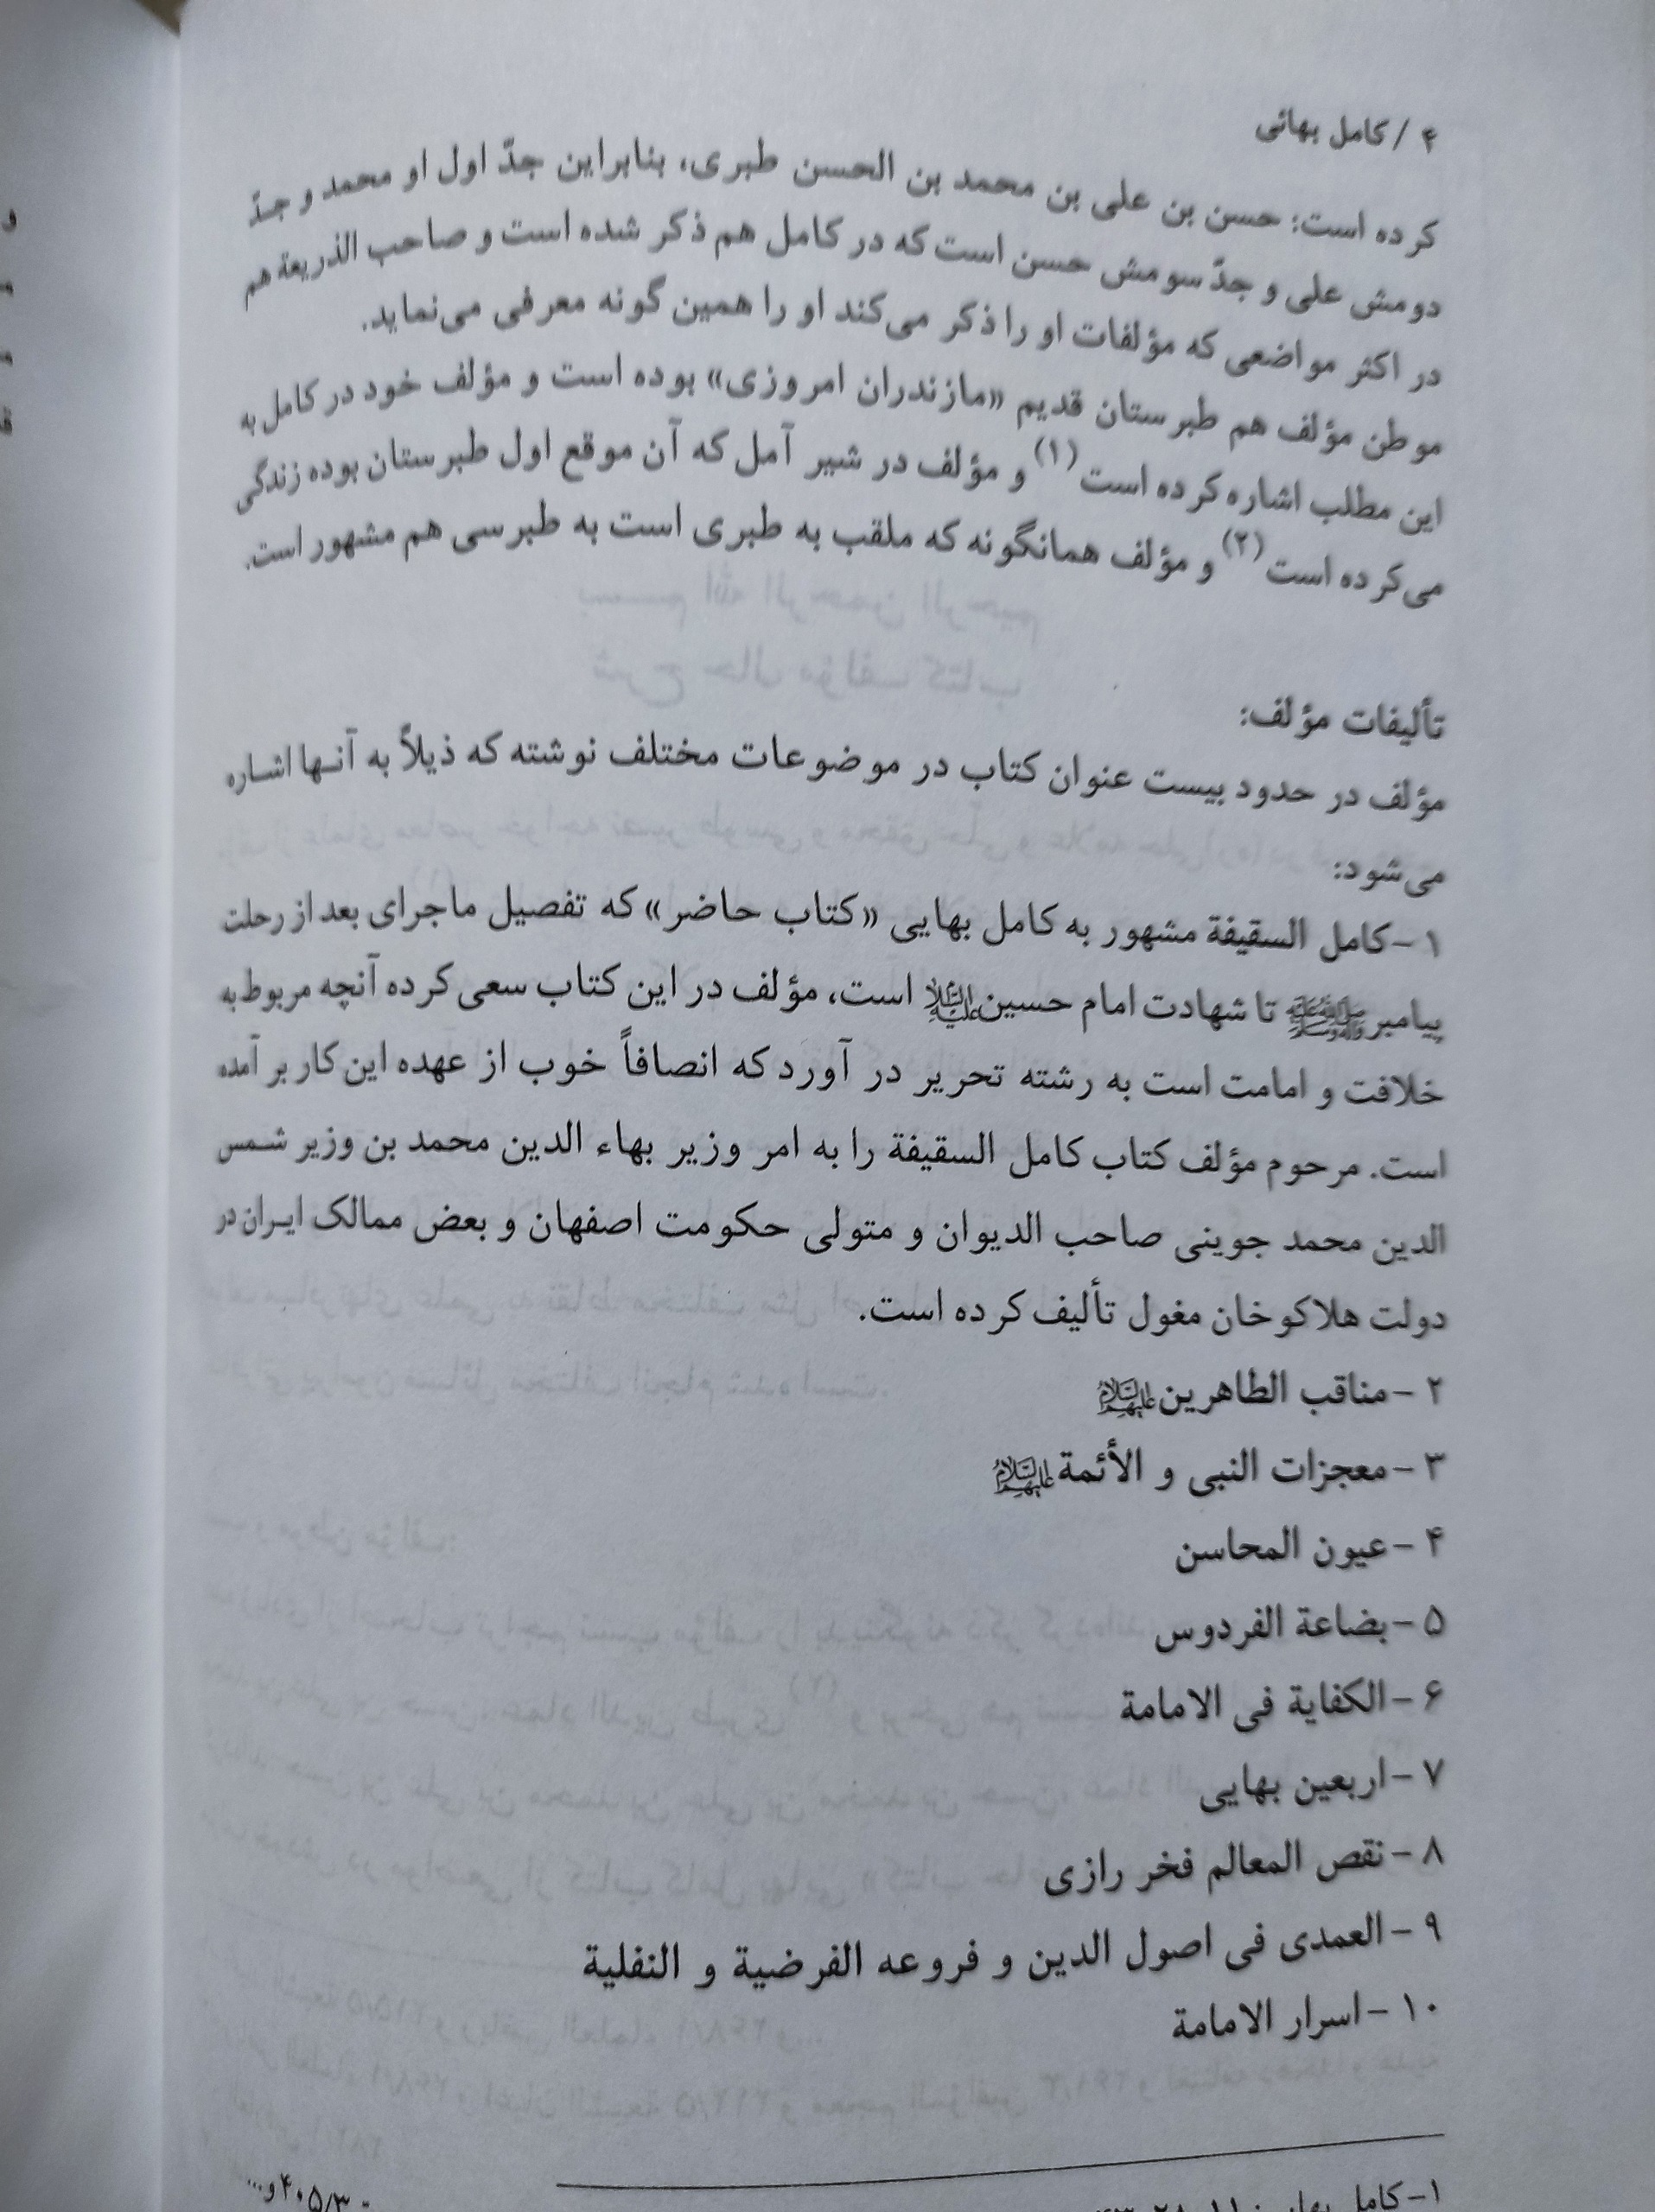 ۴ / کامل بهائی
کرده است: حسن بن علی بن محمد بن الحسن طبری، بنابراین جدّ اول او محمد و جدّ
دومش علی و جدّ سومش حسن است که در کامل هم ذکر شده است و صاحب الذریعة هم
در اکثر مواضعی که مؤلفات او را ذکر می‌کند او را همین گونه معرفی می‌نماید.
موطن مؤلف هم طبرستان قدیم «مازندران امروزی» بوده است و مؤلف خود در کامل به
این مطلب اشاره کرده است(۱) و مؤلف در شیر آمل که آن موقع اول طبرستان بوده زندگی
می‌کرده است(۲) و مؤلف همانگونه که ملقب به طبری است به طبرسی هم مشهور است.
تألیفات مؤلف:
مؤلف در حدود بیست عنوان کتاب در موضوعات مختلف نوشته که ذیلاً به آنها اشاره
می‌شود:
۱ - کامل السقیفة مشهور به کامل بهایی «کتاب حاضر» که تفصیل ماجرای بعد از رحلت
پیامبر صلی الله علیه وآله وسلم تا شهادت امام حسین علیه السلام است، مؤلف در این کتاب سعی کرده آنچه مربوط به
خلافت و امامت است به رشته تحریر در آورد که انصافاً خوب از عهده این کار بر آمده
است. مرحوم مؤلف کتاب کامل السقیفة را به امر وزیر بهاء الدین محمد بن وزیر شمس
الدین محمد جوینی صاحب الدیوان و متولی حکومت اصفهان و بعض ممالک ایران در
دولت هلاکو خان مغول تألیف کرده است.
۲ - مناقب الطاهرین علیهم السلام
۳ - معجزات النبی و الأئمة علیهم السلام
۴ - عیون المحاسن
۵ - بضاعة الفردوس
۶ - الکفایة فی الامامة
۷ - اربعین بهایی
۸ - نقص المعالم فخر رازی
۹ - العمدی فی اصول الدین و فروعه الفرضیة و النفلیة
۱۰ - اسرار الامامة
۱- کامل